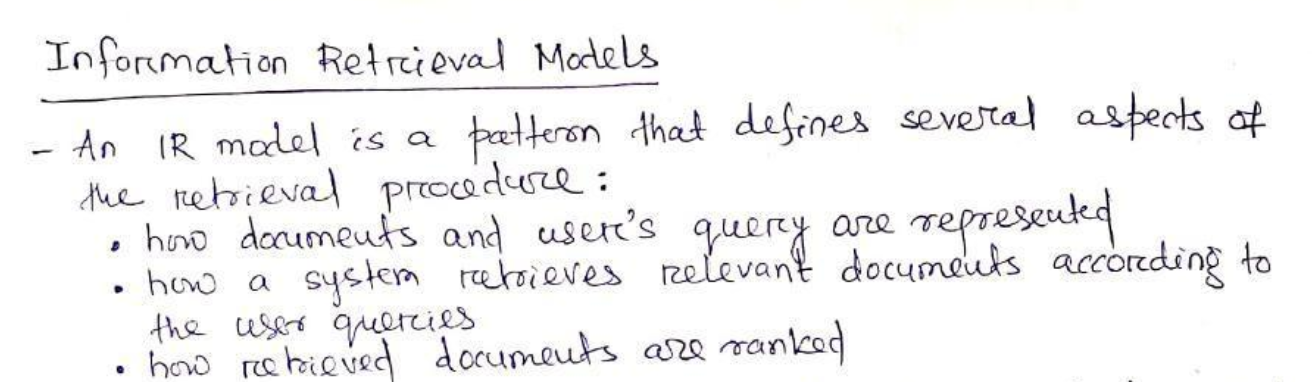 Information Retrieval Models
- An IR model is a pattern that defines several aspects of
the retrieval procedure:
• how documents and user's query are represented
• how a system retrieves relevant documents according to
the user queries
• how retrieved documents are ranked